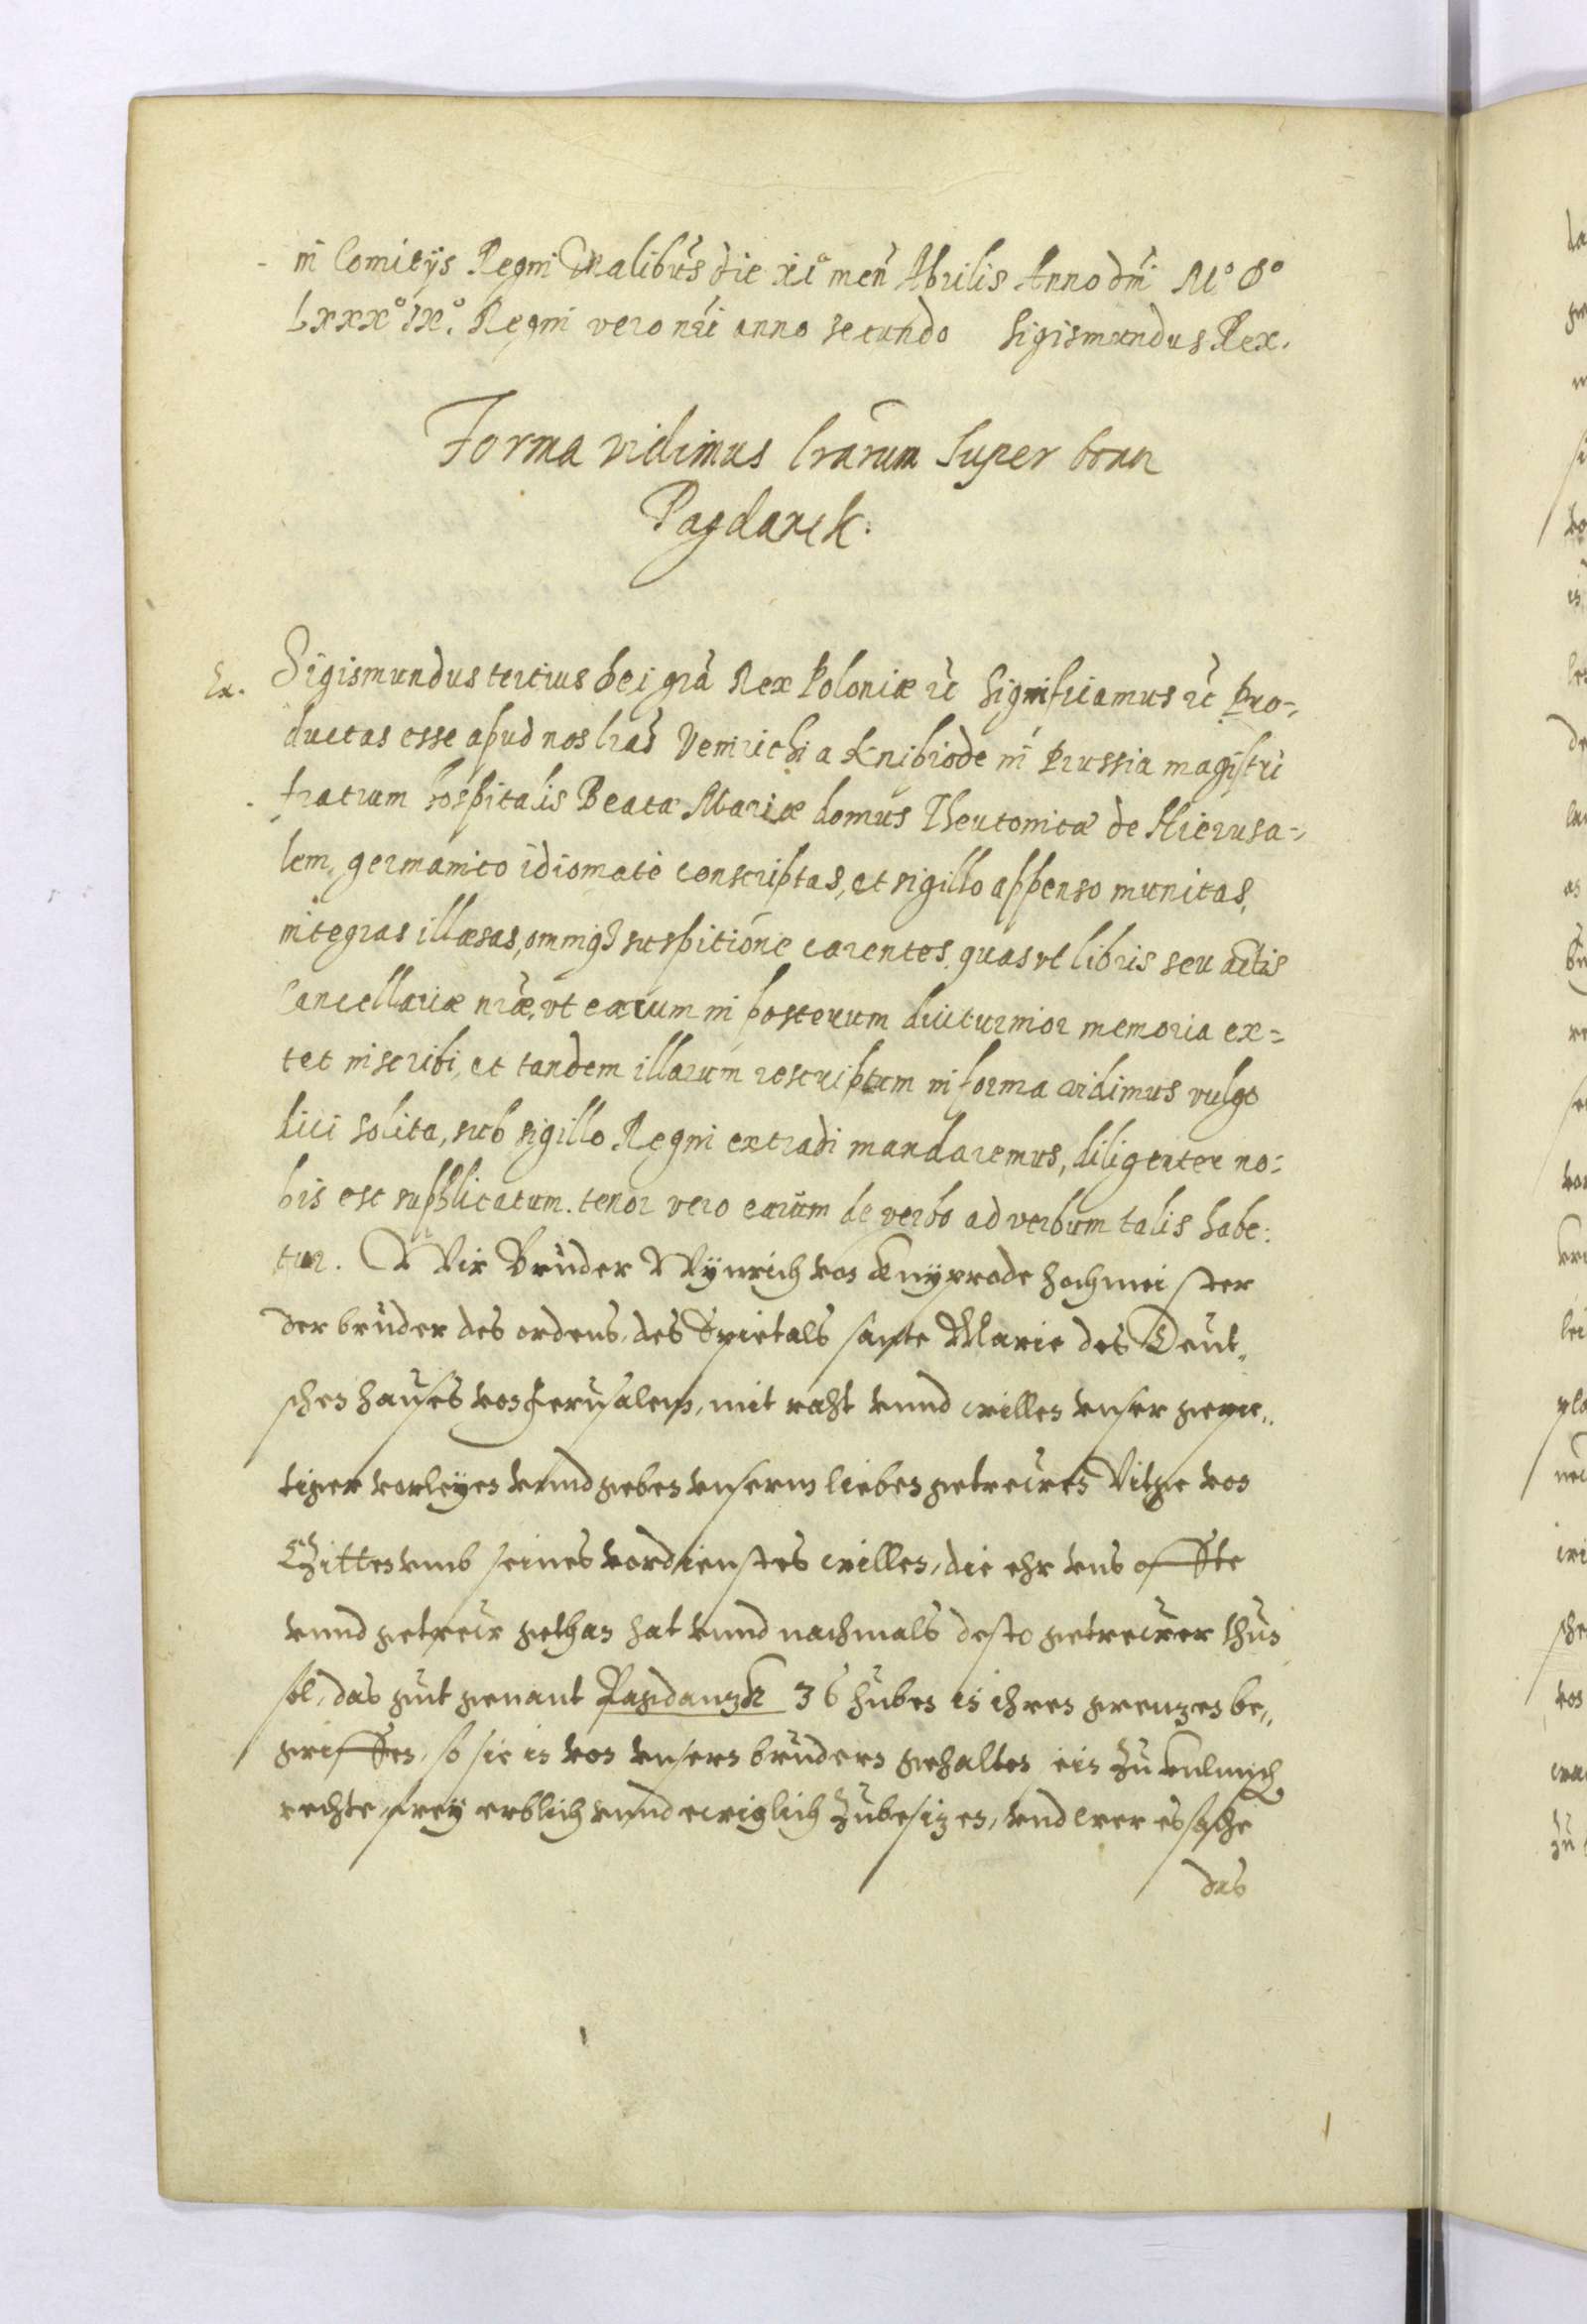 in Comitijs Regni Gnalibus die xi° men Aprilis Anno dni M° D°
Lxxx° IX°. Regni vero nri anno secundo Sigismundus Rex.
Forma vidimus lrarum super bona
Pagdanck.
Ex. Sigismundus tertius Dei gra Rex Poloniæ rc Significamus rc Pro-
ductas esse apud nos lras Venrichi a Knibrode in Prussia magistri
fratrum hospitalis Beatæ Mariæ domus Theutonicæ de Hierusa-
lem, germanico idiomate conscriptas, et sigillo appenso munitas,
integras illæsas, omniq3 suspitione carentes, quas ut libris seu actis
Cancellariæ nræ, ut earum in posterum diuturnior memoria ex-
tet inscribi, et tandem illarum rescriptum in forma vidimus vulgo
dici solita, sub sigillo Regni extradi mandaremus, diligenter no-
bis est supplicatum. tenor vero earum de verbo ad verbum talis habe:
tur. Wir Bruder Wÿnrich von Knÿprode hochmeister
der bruder des ordens, des Spietals sante Marie des Deut„
schen hauses von Jerusalem, mit raht vnnd willen vnser gepie„
tiger vorleÿen vnnd geben vnserm lieben getrewen Vitge von
Zitten vmb seines vordienstes willen, die ehr vns offte
vnnd getrew gethan hat vnnd nachmals desto getrewer thun
sol, das gut genant Pagdanzk 36 huben in ihren grenzen be„
griffen, so sie in von vnsern brudern gehalten sein zu Culmisch
rechte, freÿ erblich vnnd ewiglich zubesizen, vnd wer es sache
das